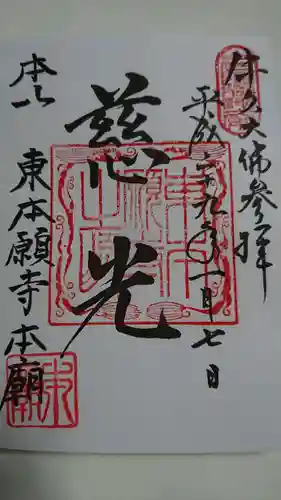 牛久大佛参拝
平成二十九年一月七日
慈光
本山
東本願寺本廟